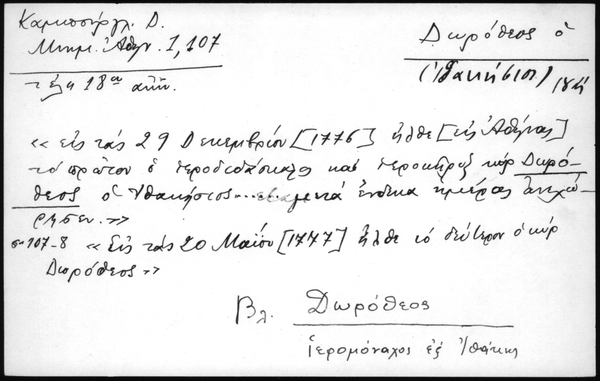 Καμπούρογλ. Δ.
Μνημ. Αθην. 1, 107
τέλη 18ου αιών.
Δωρόθεος ὁ
(Ἰθακήσιος) 18η
«εἰς τάς 29 Δεκεμβρίου [1776] ἦλθε [εἰς Ἀθήνας]
τό πρῶτον ὁ ἱεροδιδάσκαλος καί ἱεροκήρυξ κύρ Δωρό-
θεος ὁ Ἰθακήσιος..... μετά ἕνδεκα ἡμέρας ἀνεχώ-
ρησεν.»
σ. 107-8 «Εἰς τάς 20 Μαΐου [1777] ἦλθε τό δεύτερον ὁ κύρ
Δωρόθεος»
Βλ. Δωρόθεος
ἱερομόναχος ἐξ Ἰθάκης